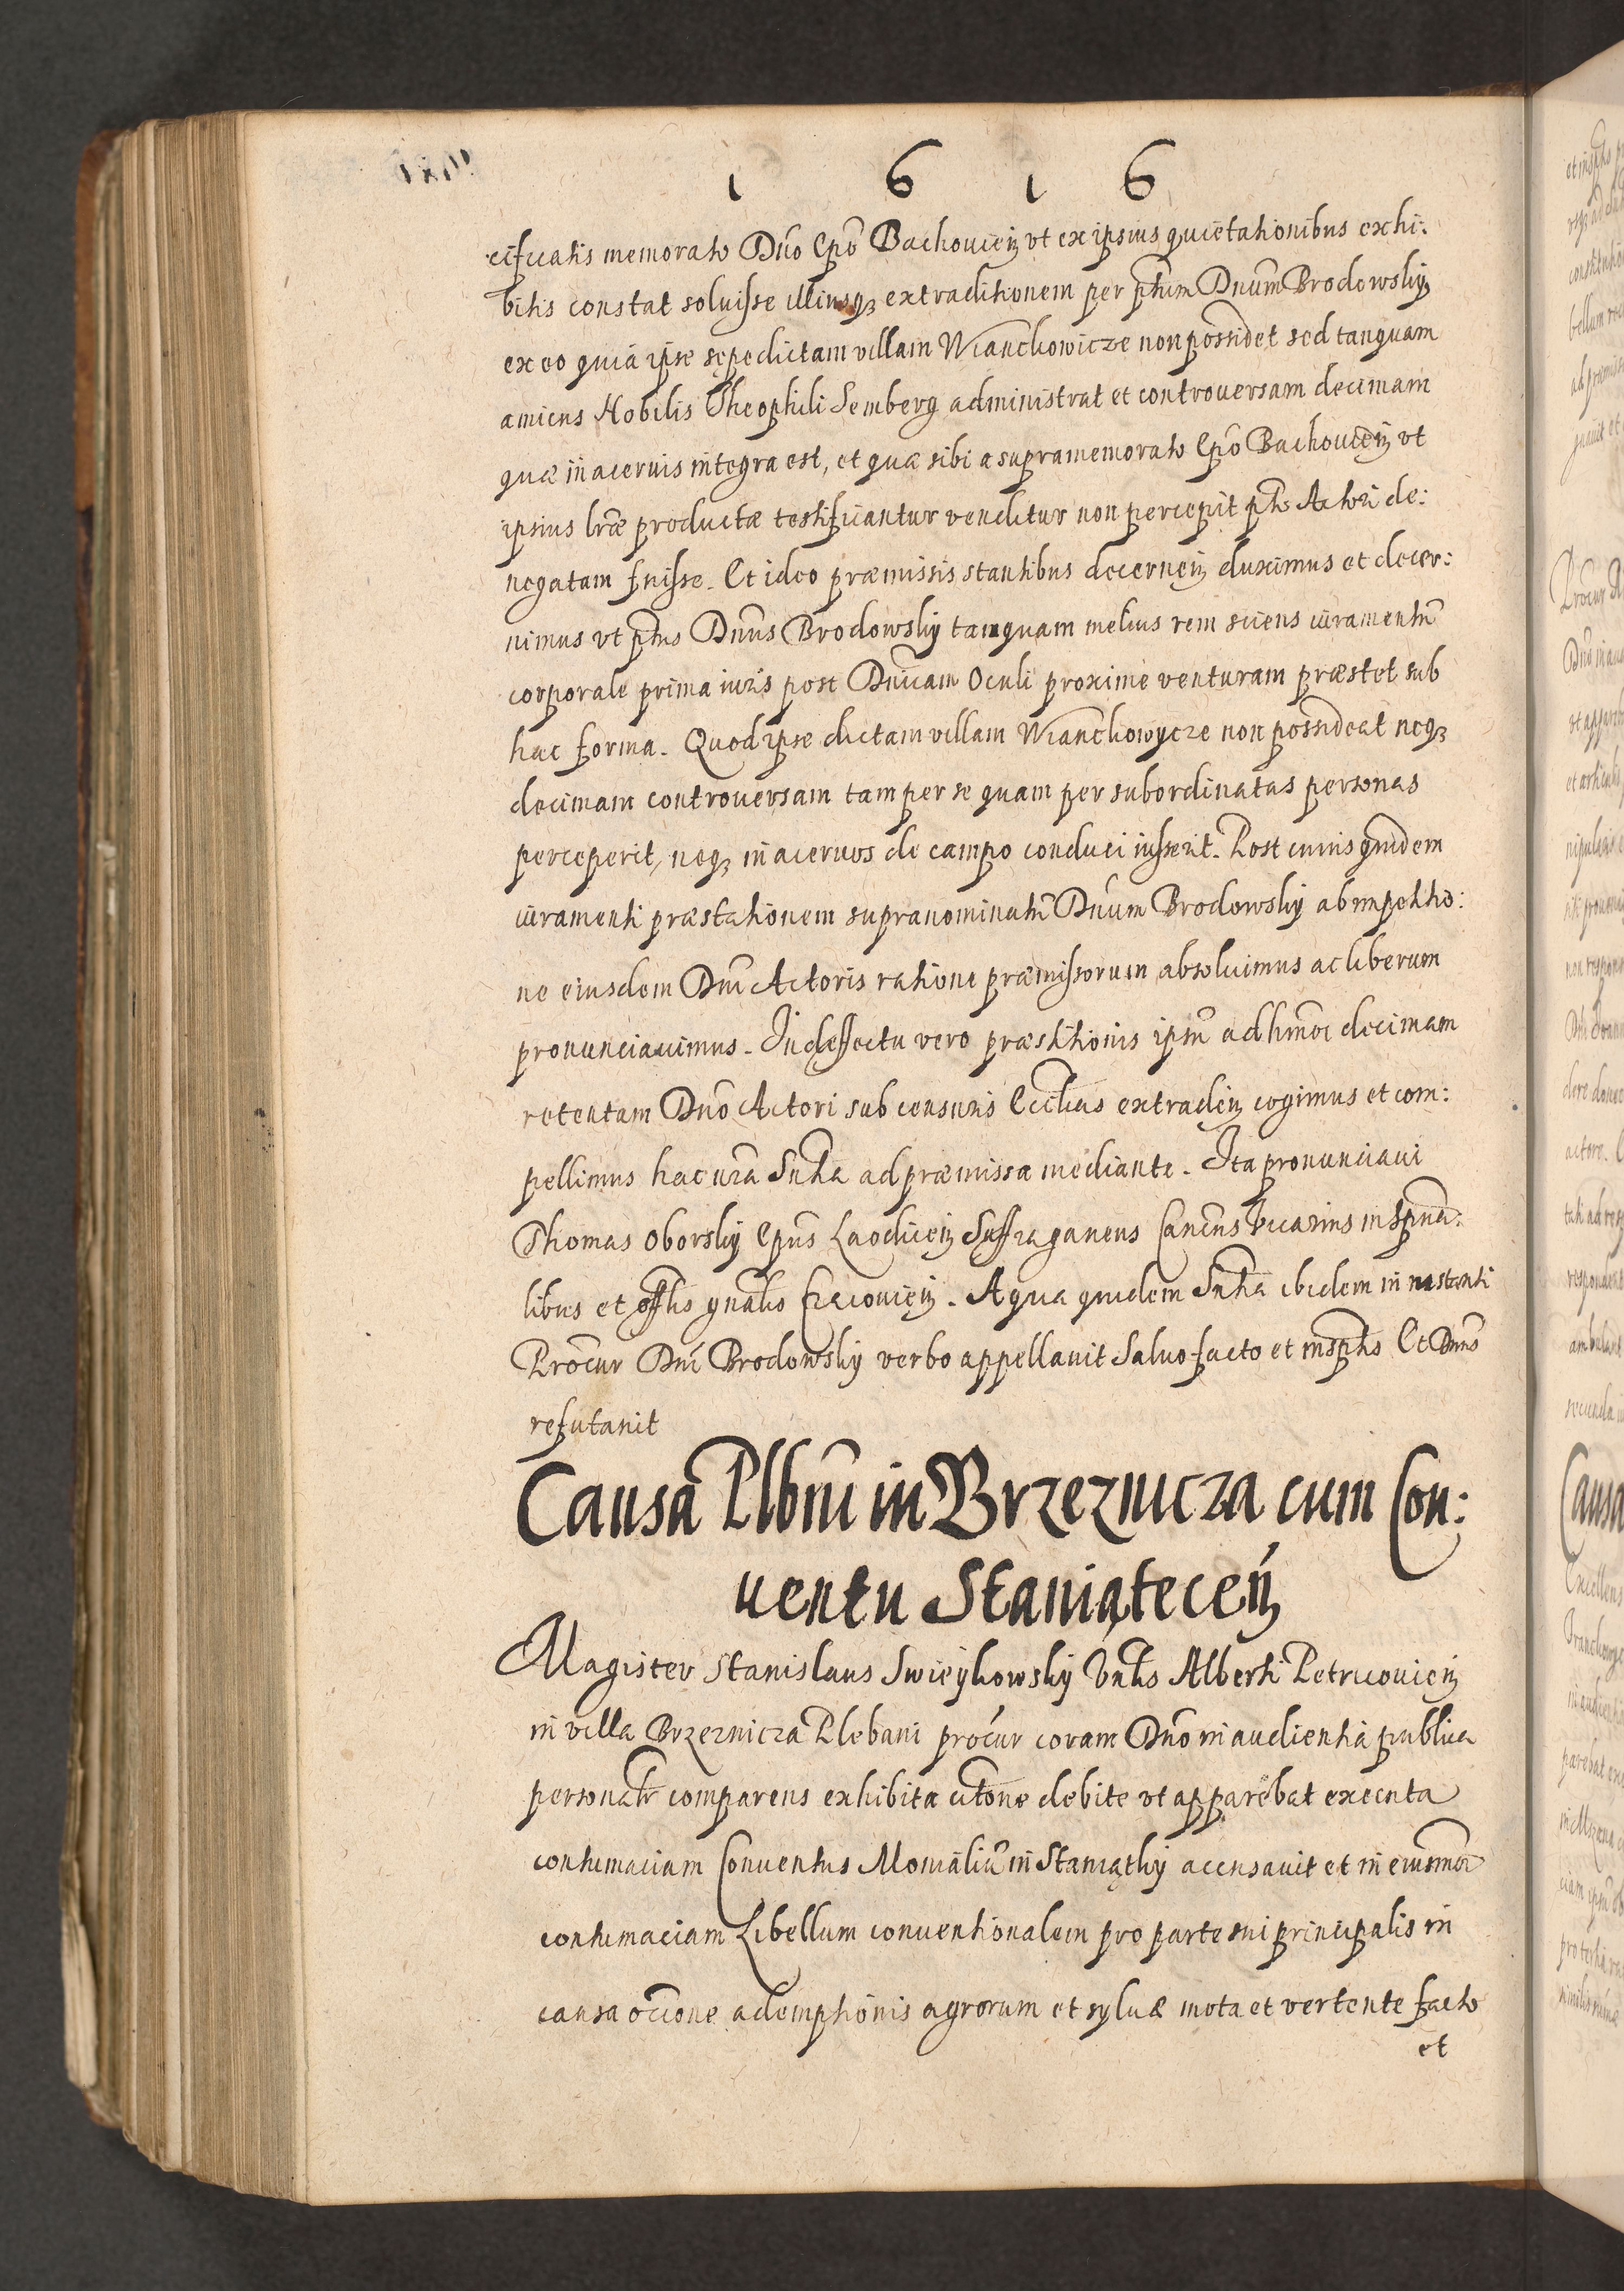 1 6 1 6
cificatis memorato Dno Epo Bachovieñ vt ex ipsius quietationibus exhi:
bitis constat soluisse illiusq₃ extraditionem per ptum Dnum Brodowsky
ex eo quia ipse sępedictam villam Wianckowicze non possidet sed tanquam
amicus Nobilis Theophili Semberg administrat et controuersam decimam
quæ in aceruis integra est, et quæ sibi a supramemorato Epo Bachovieñ vt
ipsius lræ productæ testificantur venditur non percepit pto Actori de:
negatam fuisse. Et ideo præmissis stantibus decerneñ duximus et decer:
nimus vt ptus Dnus Brodowsky tanquam melius rem sciens iuramentu͂
corporale prima iuris post Dnicam Oculi proxime venturam præstet sub
hac forma. Quod ipse dictam villam Wianckowycze non possideat neq₃
decimam controuersam tam per se quam per subordinatas personas
perceperit, neq₃ in aceruos de campo conduci iusserit. Post cuius quidem
iuramenti præstationem supranominatu͂ Dnum Brodowsky ab impetitio:
ne eiusdem Dni Actoris ratione præmissorum absoluimus ac liberum
pronunciauimus. In deffectu vero præstitionis ipsu͂ ad hmoi decimam
retentam Dno Actori sub censuris Ecclicis extradeñ cogimus et com:
pellimus hac nra Sntia ad præmissa mediante. Ita pronunciaui
Thomas Oborsky Epus Laodiceñ Suffraganeus Cancus Vicarius in Spuа:
libus et offlis gnalis Cracovieñ. A qua quidem Sntia ibidem in instanti
Procur Dni Brodowsky verbo appellauit Saluo facto et insptis Et Dnus
refutauit
Causa Plbni in Brzeznicza cum Con:
uentu Staniąteceñ
Magister Stanislaus Swieykowsky Vnlis Alberti Petricovieñ
in villa Brzeznicza Plebani procur coram Dno in audientia publica
personalr comparens exhibita citone debite vt apparebat executa
contumaciam Conuentus Monialiu͂ in Staniątky accusauit et in eiusmoi
contumaciam Libellum conuentionalem pro parte sui principalis in
causa occione ademptionis agrorum et syluæ mota et vertente facto
et